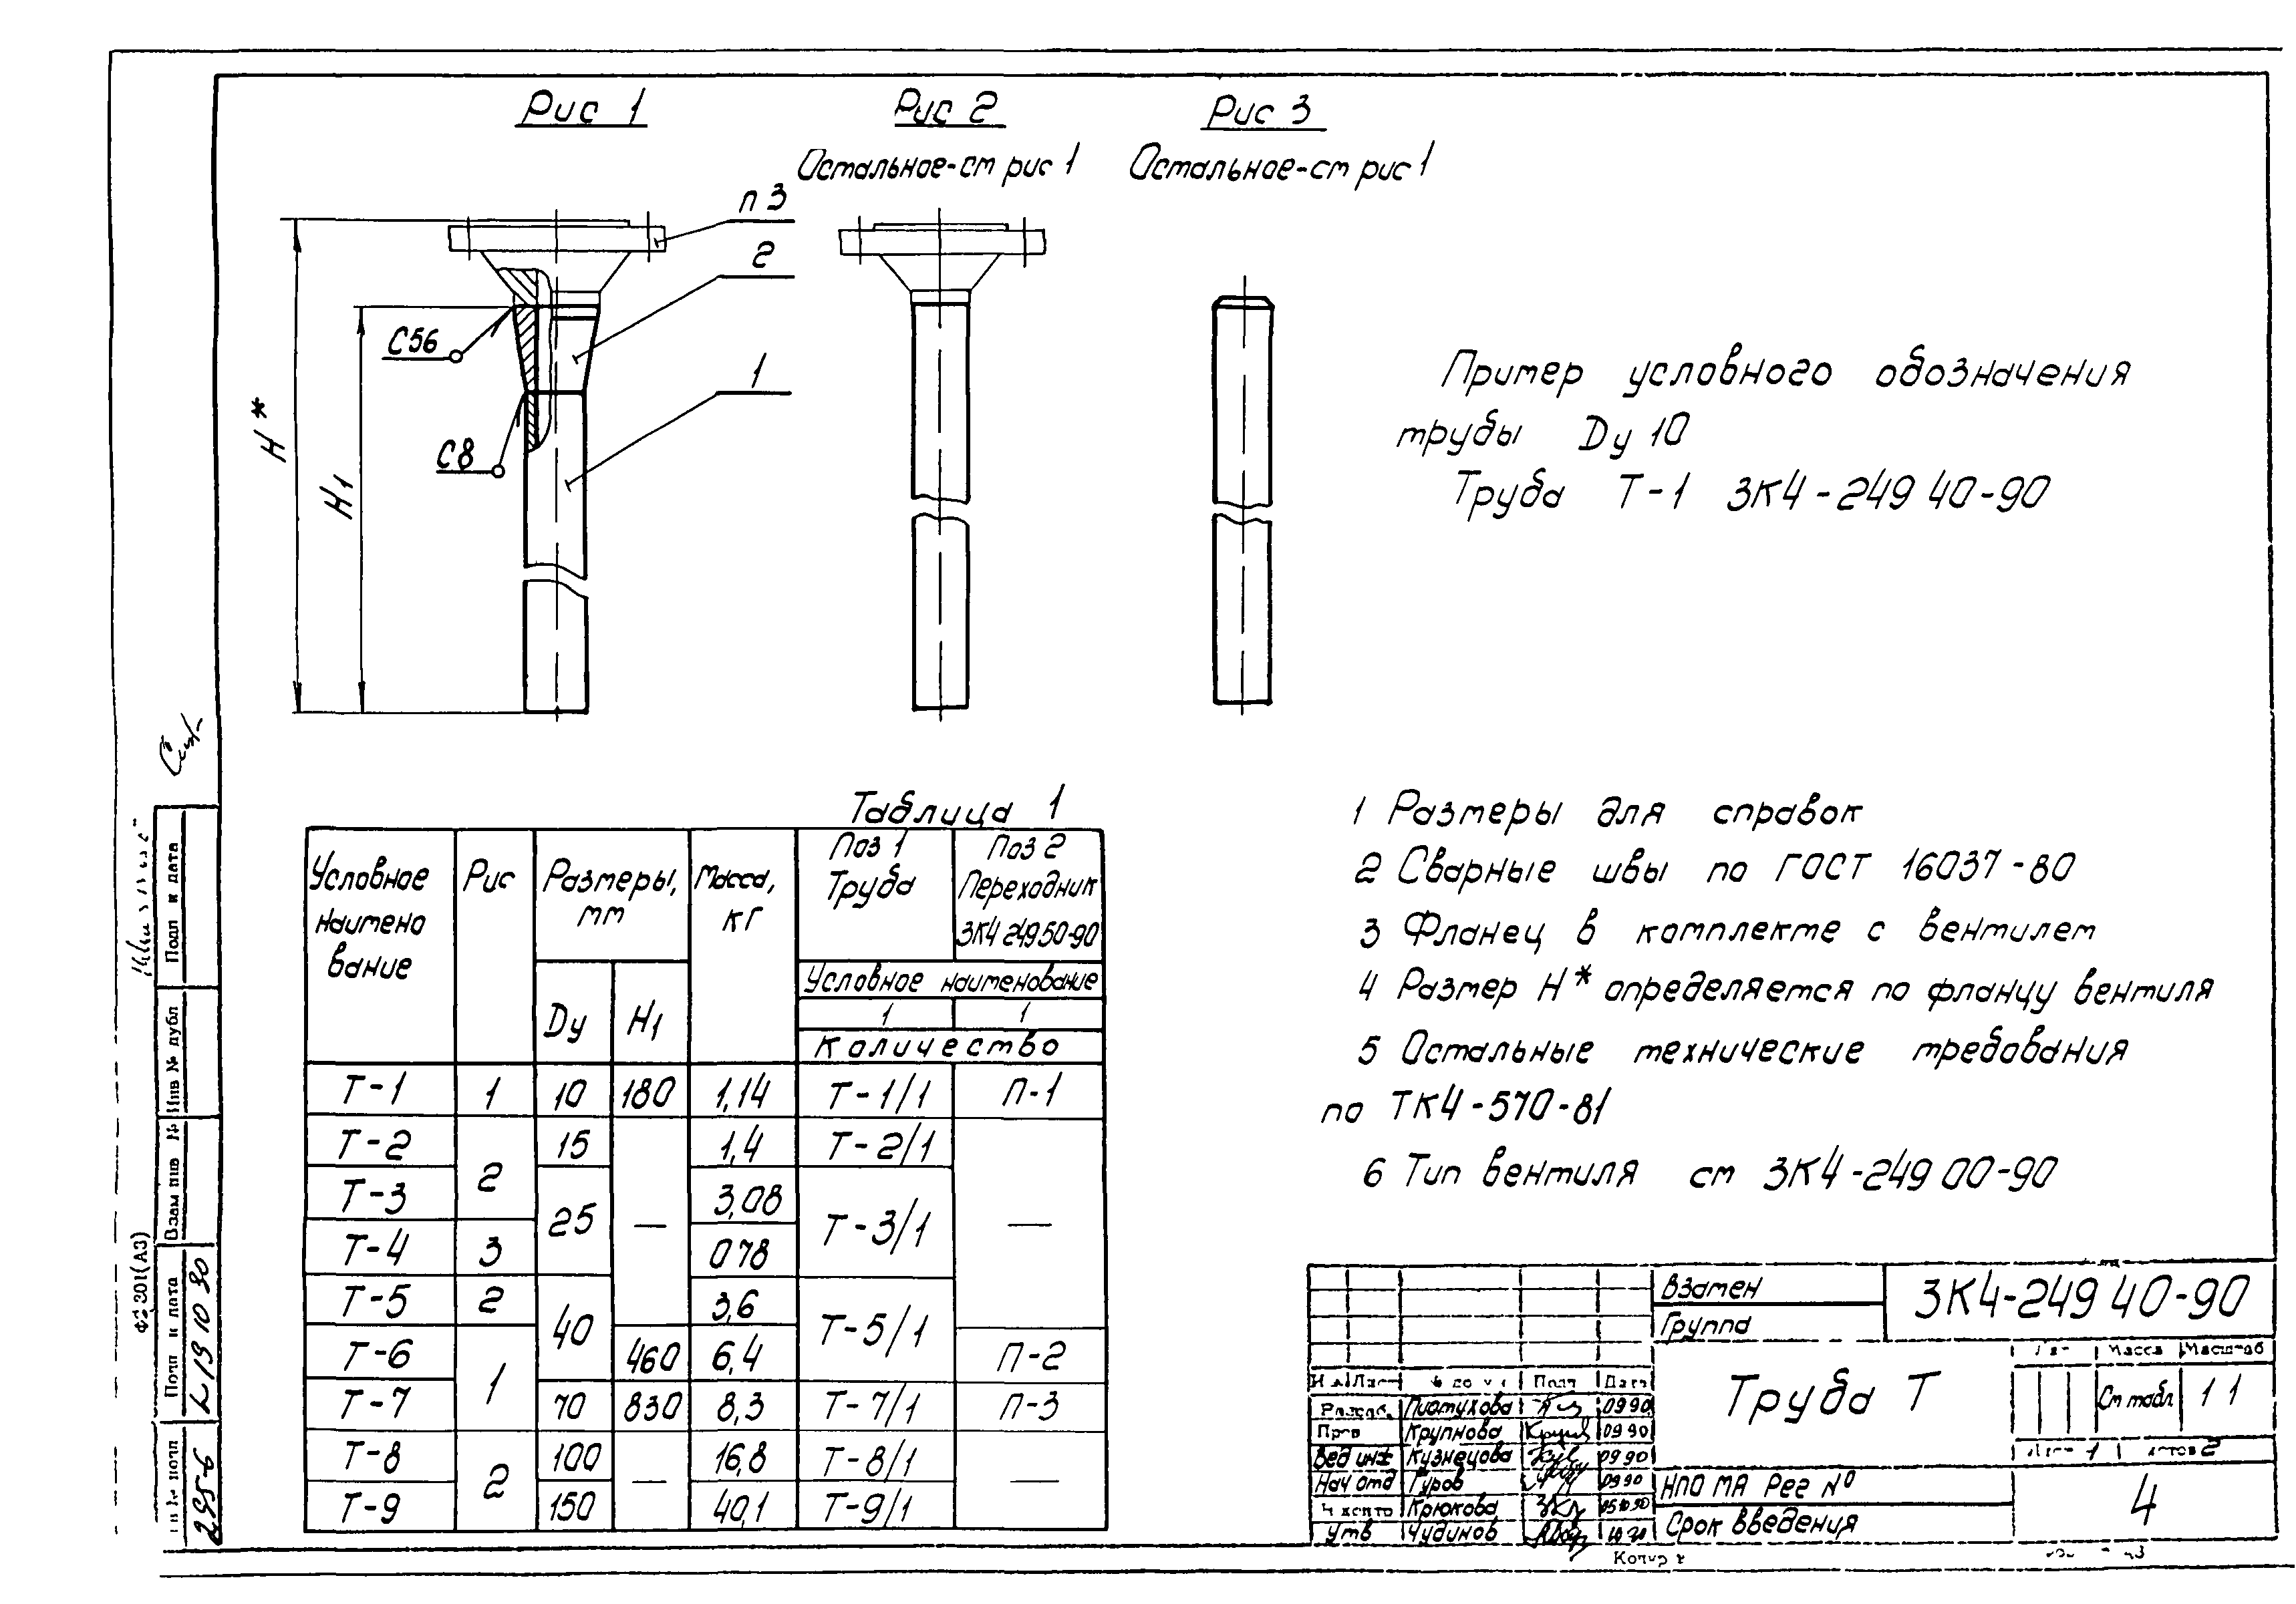 Рис 1
Рис 2
Рис 3
Остальное-см рис 1
Остальное-см рис 1
п 3
2
1
С56
С8
H*
H1
Пример условного обозначения
трубы Dу 10
Труба Т-1 ЗК4-249 40-90
Таблица 1
Условное наимено вание
Рис
Размеры, мм
Масса, кг
Поз 1 Труба
Поз 2 Переходник ЗК4 249 50-90
Условное наименование
Dу
H1
1
1
Количество
Т-1 1 10 180 1,14 Т-1/1 П-1
Т-2 2 15 — 1,4 Т-2/1 —
Т-3 25 3,08 Т-3/1
Т-4 3 0 78
Т-5 2 40 3,6 Т-5/1
Т-6 1 460 6,4 П-2
Т-7 70 830 8,3 Т-7/1 П-3
Т-8 2 100 — 16,8 Т-8/1 —
Т-9 150 40,1 Т-9/1
1 Размеры для справок
2 Сварные швы по ГОСТ 16037-80
3 Фланец в комплекте с вентилем
4 Размер H* определяется по фланцу вентиля
5 Остальные технические требования
по ТК4-570-81
6 Тип вентиля см ЗК4-249 00-90
Взамен
Группа
ЗК4-249 40-90
Труба Т
Масса Масштаб
См табл 1 1
Лист 1 Листов 2
Подп Дата
Разраб. 09 90
Пров Крупнова 09 90
Вед инж Кузнецова 09 90
Нач отд Гуров 09 90
Крюкова 05 10 90
Утв Чудинов
НПО МА Рег №
Срок введения
4
Копир
Подп и дата
Инв № дубл
Взам инв №
Подп и дата
19 10 90
2955-6
Ф2 301(А3)